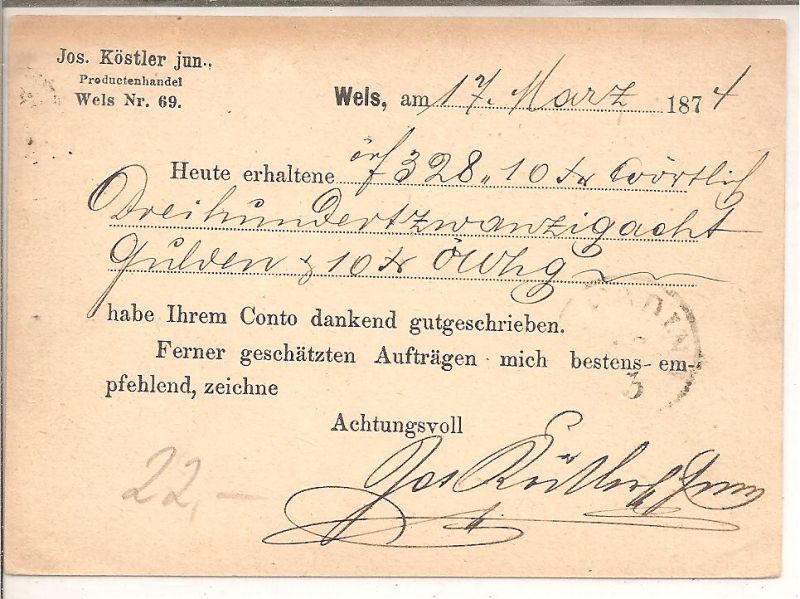 Jos. Köstler jun.,
Productenhandel
Wels Nr. 69.
Wels, am 17. März 1874
Heute erhaltene öf 328,, 10 Xr wörtlich
Dreihundertzwanzigacht
Gulden & 10 Xr ÖWhg
habe Ihrem Conto dankend gutgeschrieben.
Ferner geschätzten Aufträgen mich bestens em-
pfehlend, zeichne
Achtungsvoll
Jos Köstler jun
22,—
3